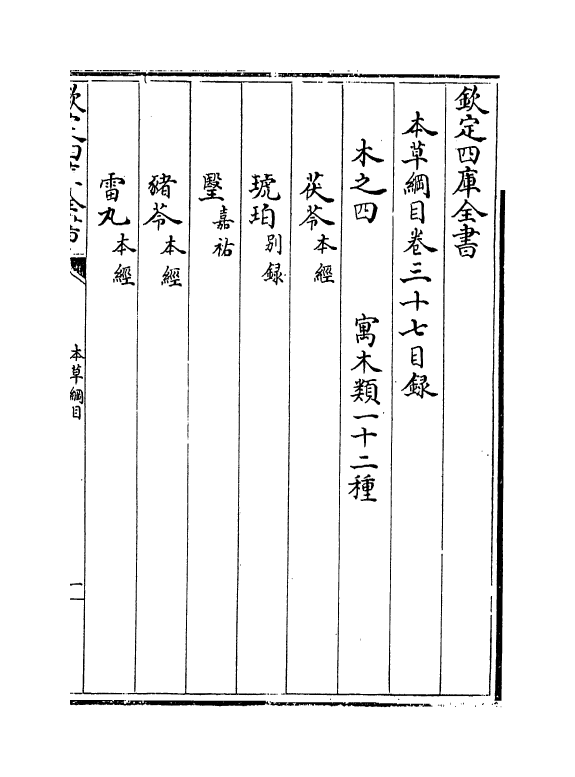 欽定四庫全書
本草綱目卷三十七目録
木之四　寓木類一十二種
茯苓本經
琥珀别録
瑿嘉祐
豬苓本經
雷丸本經
欽定四庫全書
本草綱目
一